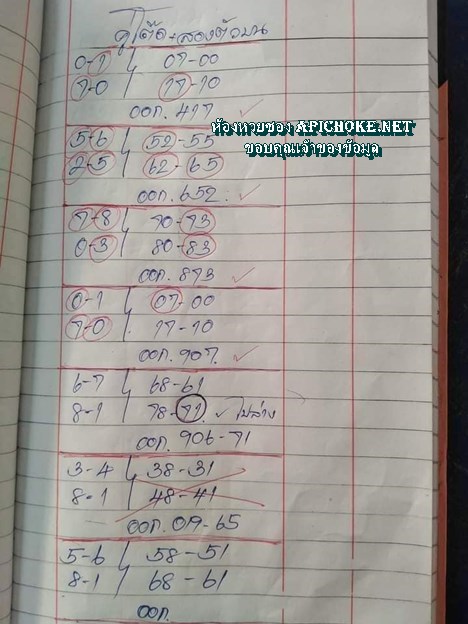 คู่โต๊ด+สองตัวบน
0-1 07-00
7-0 17-10
ออก. 417 ✓
ห้องหวยซอง APICHOKE.NET
ขอบคุณเจ้าของข้อมูล
5-6 52-55
2-5 62-65
ออก. 652. ✓
7-8 70-73
0-3 80-83
ออก. 873 ✓
0-1 07-00
7-0 17-10
ออก. 907. ✓
6-7 68-61
8-1 78-71. ✓ ไปล่าง
ออก. 906-71
3-4 38-31
8-1 48-41
ออก. 019-65
5-6 58-51
8-1 68-61
ออก.